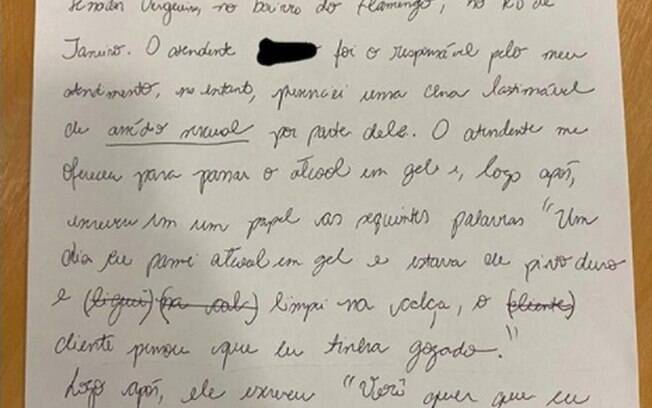 Senador Vergueiro, no bairro do Flamengo, no Rio de
Janeiro. O atendente foi o responsável pelo meu
atendimento, no entanto, presenciei uma cena lastimável
de assédio sexual por parte dele. O atendente me
ofereceu para passar o álcool em gel e, logo após,
escreveu em um papel as seguintes palavras "Um
dia eu passei álcool em gel e estava de pinto duro
e (liguei) (na calç) limpei na calça, o (cliente)
cliente pensou que eu tinha gozado."
Logo após, ele escreveu "Você quer que eu